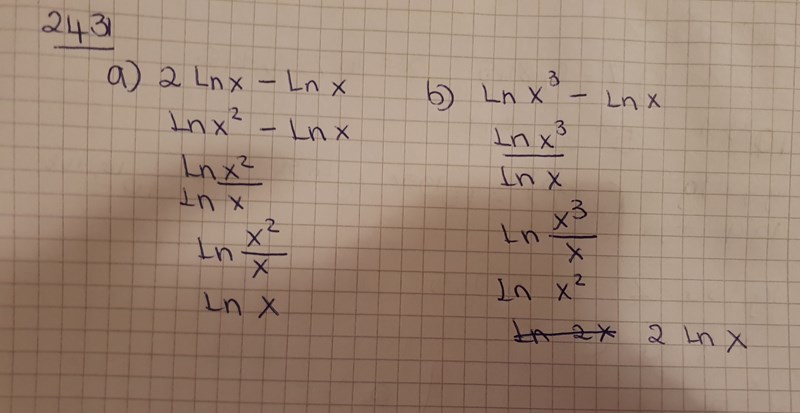 2431
a) 2 Ln x - Ln x
Ln x² - Ln x
Ln x²
Ln x
Ln x²/x
Ln x
b) Ln x³ - Ln x
Ln x³
Ln x
Ln x³/x
Ln x²
Ln 2x 2 Ln x